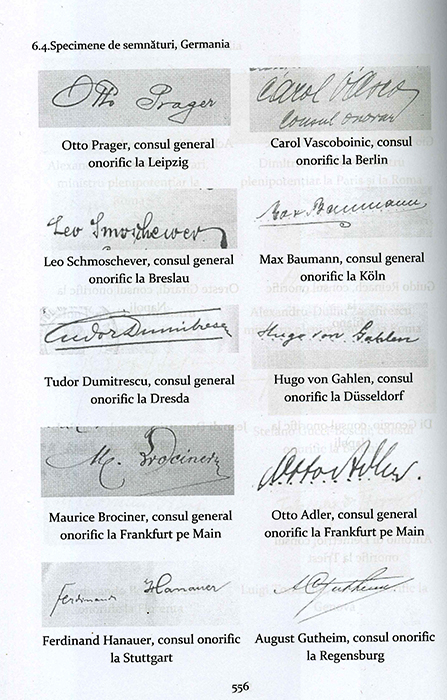 6.4.Specimene de semnături, Germania
Otto Prager
Carol Vasco
Consul onorar
Otto Prager, consul general
onorific la Leipzig
Carol Vascoboinic, consul
onorific la Berlin
Leo Smoschewer
Max Baumann
Leo Schmoschever, consul general
onorific la Breslau
Max Baumann, consul general
onorific la Köln
Tudor Dumitrescu
Hugo von Gahlen
Tudor Dumitrescu, consul general
onorific la Dresda
Hugo von Gahlen, consul
onorific la Düsseldorf
M. Brociner
Otto Adler.
Maurice Brociner, consul general
onorific la Frankfurt pe Main
Otto Adler, consul general
onorific la Frankfurt pe Main
Ferdinand Hanauer
AGutheim
Ferdinand Hanauer, consul onorific
la Stuttgart
August Gutheim, consul onorific
la Regensburg
556